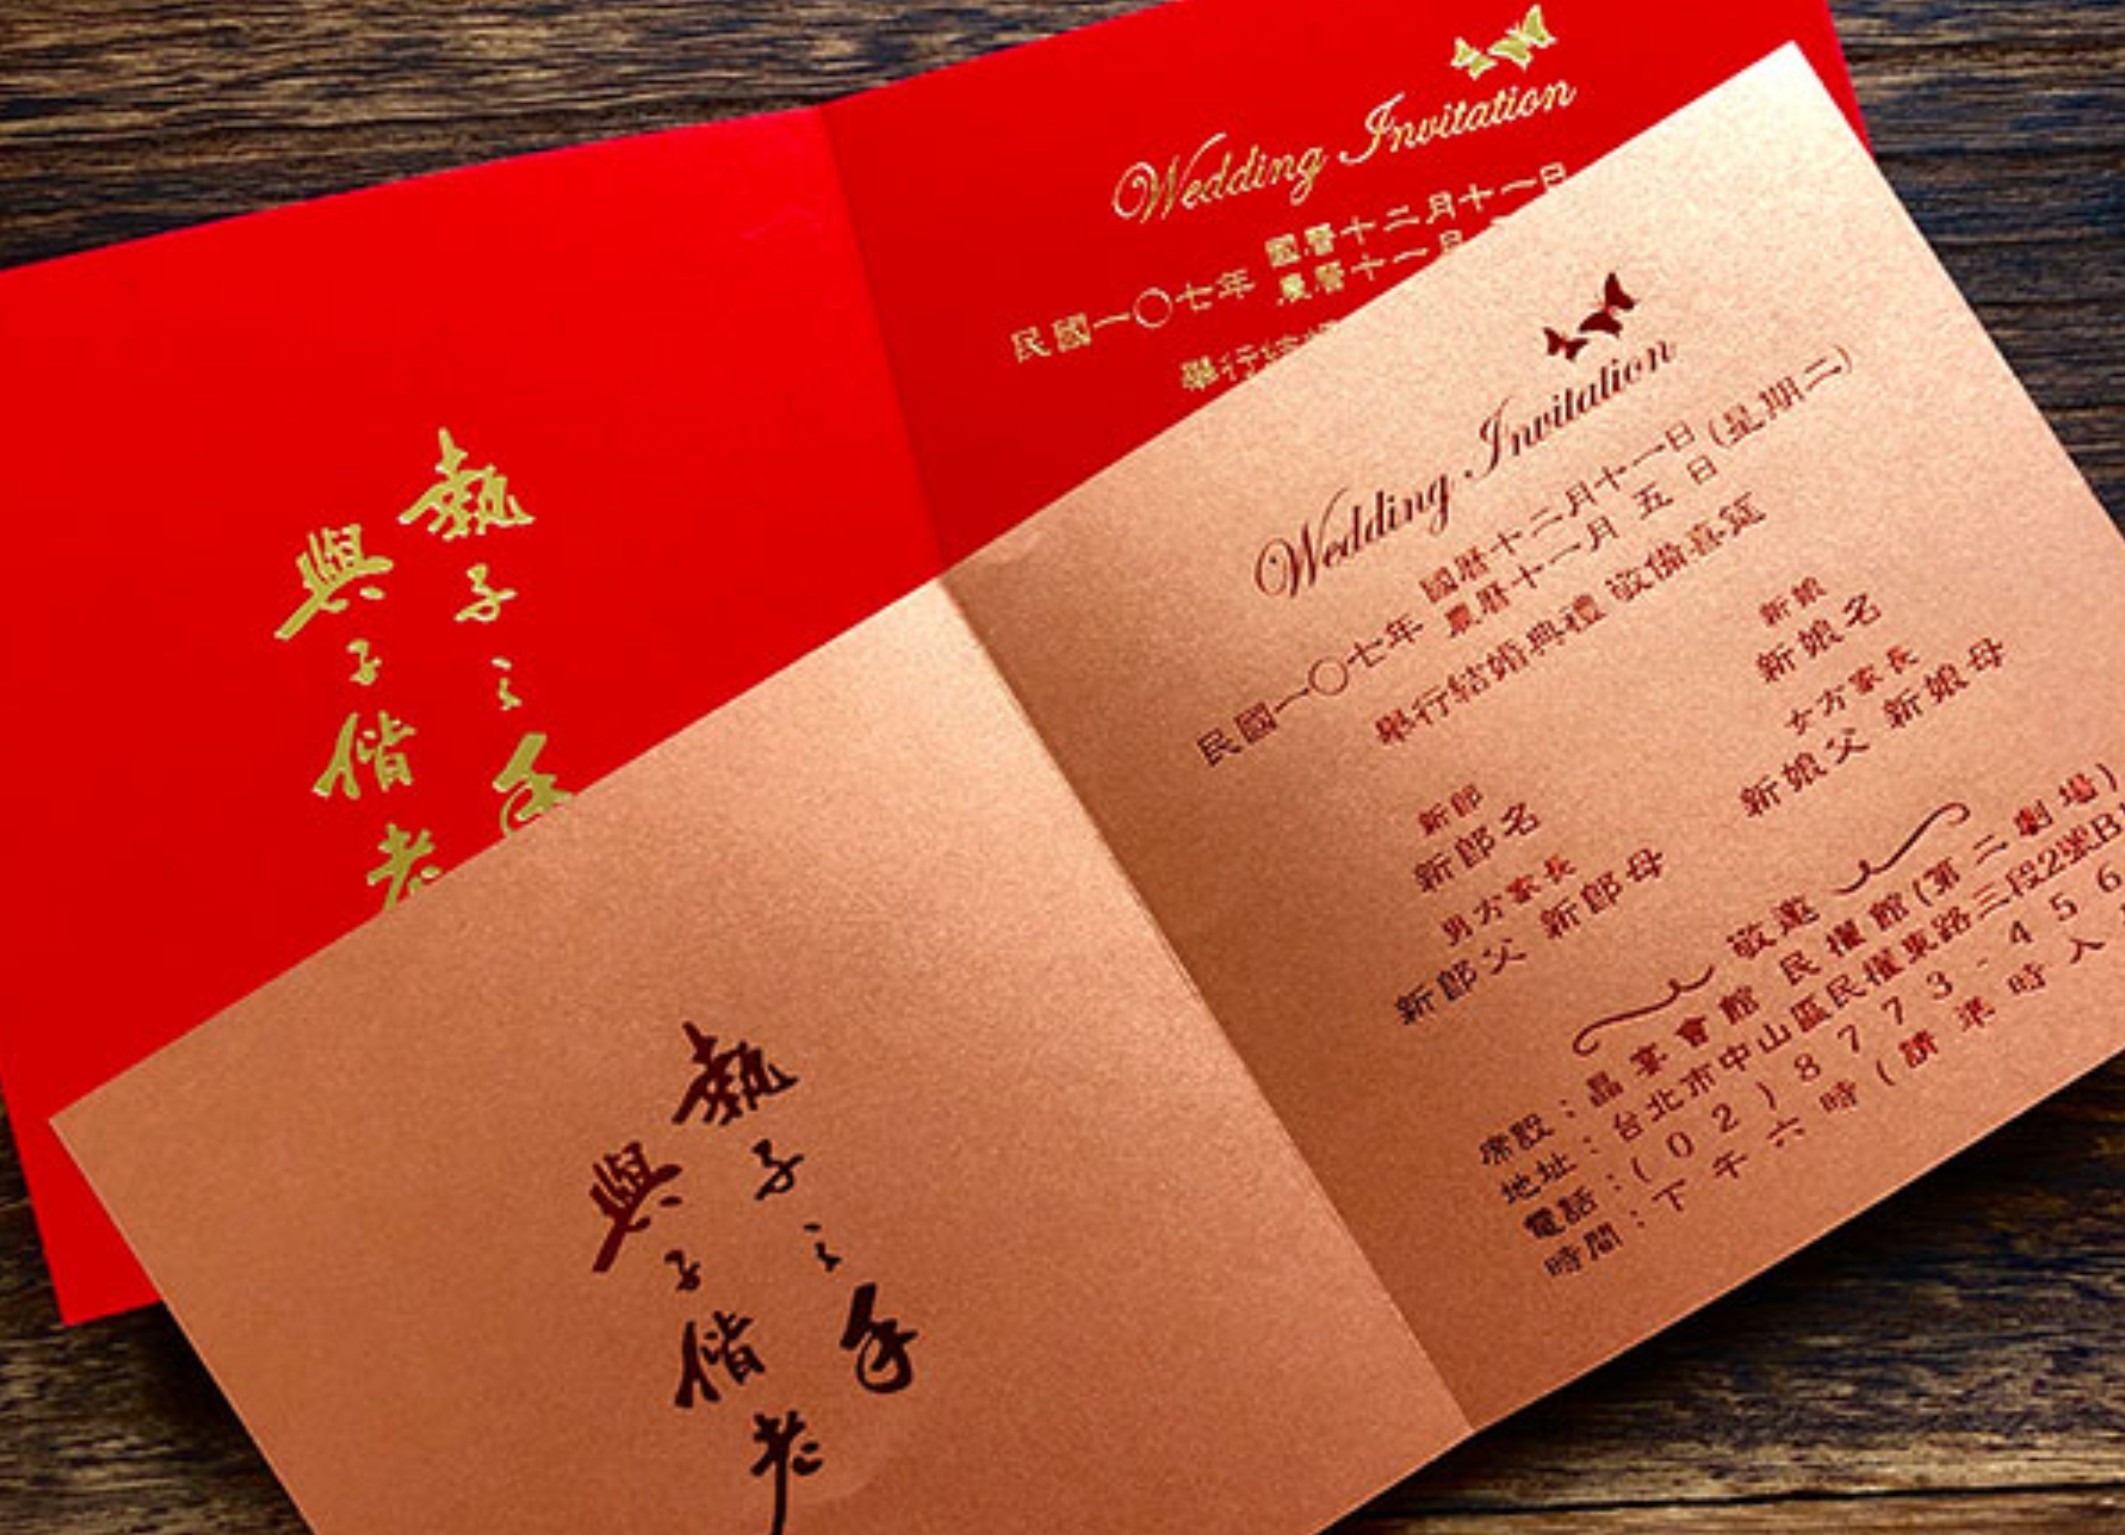 執子之手
與子偕老
Wedding Invitation
民國一〇七年
國曆十二月十一日
農曆十一月
舉行結
執子之手
與子偕老
Wedding Invitation
民國一〇七年
國曆十二月十一日
農曆十一月 五 日
(星期二)
舉行結婚典禮 敬備喜筵
新郎
新郎名
男方家長
新郎父 新郎母
新娘
新娘名
女方家長
新娘父 新娘母
敬邀
席設：晶宴會館 民權館(第二劇場)
地址：台北市中山區民權東路三段2號B
電話：(02)8773-456
時間：下午六時(請準時入